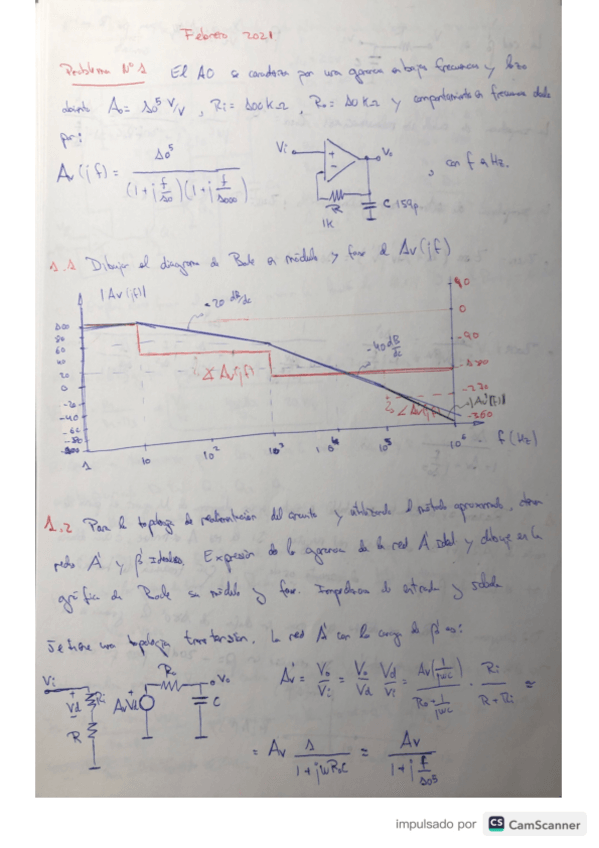 Febrero 2021
Problema Nº 1 El AO se caracteriza por una ganancia en bajas frecuencias y lazo
abierto A₀ = 10⁵ V/V, Ri = 100 KΩ, Ro = 10 KΩ y comportamiento en frecuencia dado
por:
Av(jf) = 10⁵ / (1+j f/10)(1+j f/1000)
Vi + - Vo R 1K C 159p
, con f en Hz.
1.1 Dibujar el diagrama de Bode en módulo y fase de Av(jf)
|Av(jf)|
-20 dB/dc
-40 dB/dc
∡ Av(jf)
∠Av(jf)
|A'(f)|
100
80
60
40
20
0
-20
-40
-60
-80
-100
90
0
-90
-180
-270
-360
1 10 10² 10³ 10⁴ 10⁵ 10⁶ f (Hz)
1.2 Para la topología de realimentación del circuito y utilizando el método aproximado, obtener
redes A' y β ideales. Expresión de la ganancia de la red A' ideal y dibuje en la
gráfica de Bode su módulo y fase. Impedancia de entrada y salida.
Se tiene una topología transtensión. La red A' con la carga de β es:
Vi + Vd - Ri R AvVd + Ro Vo C
A'v = Vo/Vi = Vo/Vd · Vd/Vi = Av(1/jωC) / Ro + 1/jωC · Ri / R+Ri ≅
= Av 1 / 1+jωRoC ≅ Av / 1+j f/10⁵
impulsado por CS CamScanner